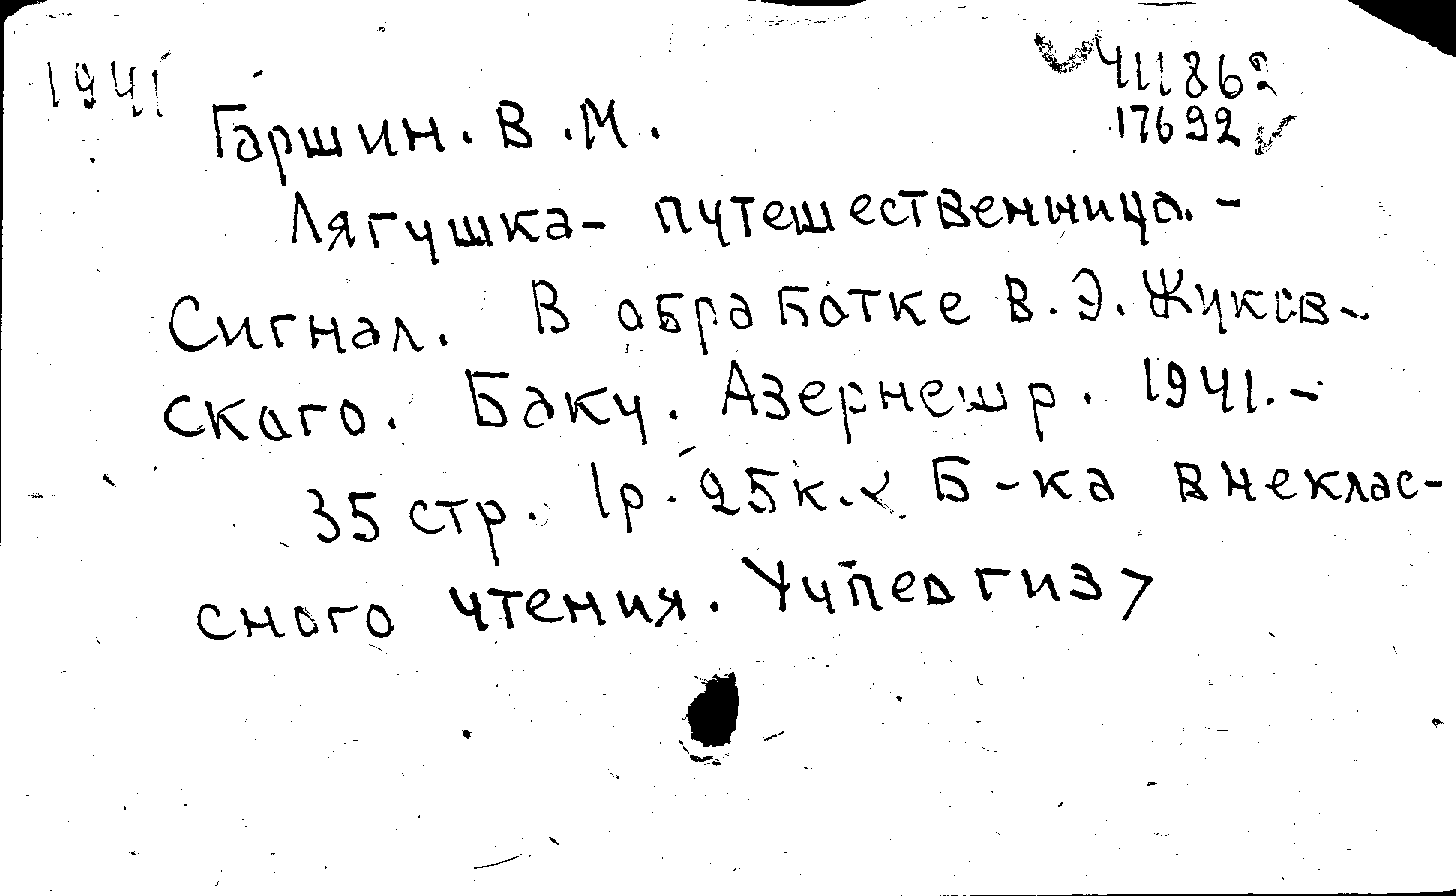 1941
411862
17692
Гаршин. В.М.
Лягушка-путешественница.-
Сигнал. В обработке В.Э. Жуков-
ского. Баку. Азернешр. 1941.-
35 стр. 1р. 25к. < Б-ка внеклас-
сного чтения. Учпедгиз >